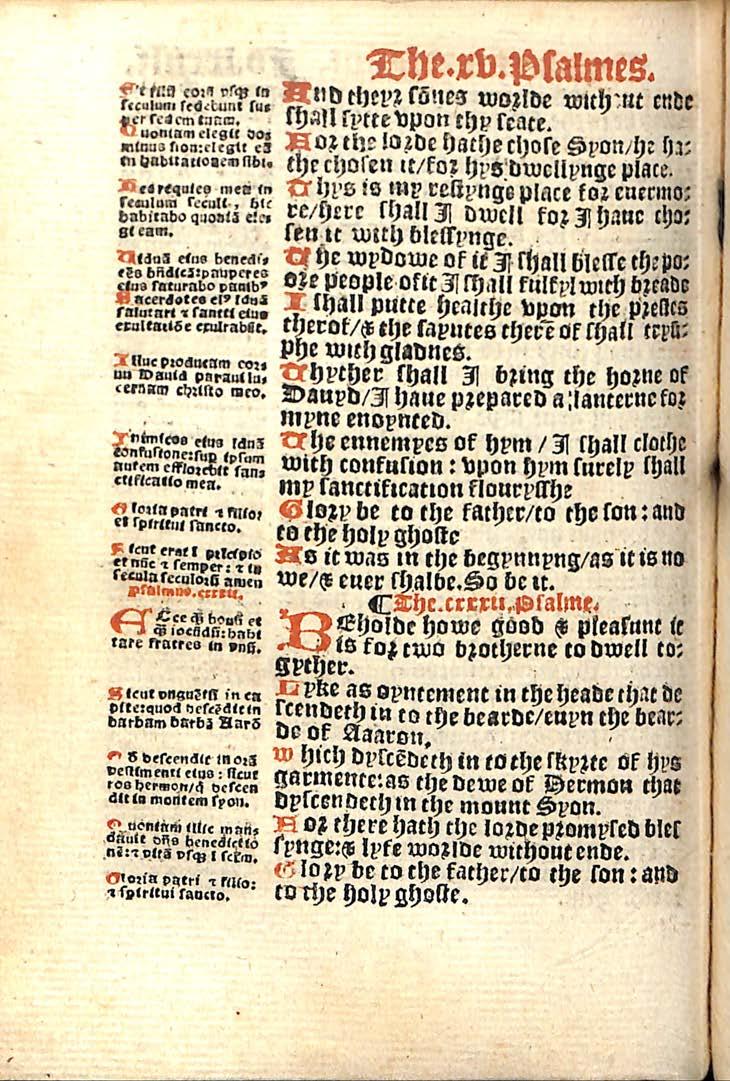 The.xv.Psalmes.
Et filii eorū vsq3 in
seculum sedebunt sup
per sedem tuam.
Quoniam elegit dos
minus sion: elegit eā
in habitationem sibi.
Hec requies mea in
seculum seculi, hic
habitabo quoniā eles
gi eam.
Uiduā eius benedis
cēs bñdicā: pauperes
eius saturabo panibꝰ
Sacerdotes eiꝰ iduā
salutari ⁊ sancti eius
exultatiōe exultabūt.
Illuc producam cors
nu Dauid paraui lus
cernam christo meo.
Inimicos eius iduā
confusione: sup ipsum
autem efflorebit sans
ctificatio mea.
Gloria patri ⁊ filio:
et spiritui sancto.
Sicut erat ī prīcipio
et nūc ⁊ semper: ⁊ in
secula seculorū amen
Psalmus.cxxxii.
ECce q̄ bonū et
q̄ iocūdū: habi
tare fratres in vnū.
Sicut vnguētū in ca
pite: quod descēdit in
barbam barbā Aarō
Qd̄ descendit in orā
vestimenti eius: sicut
ros hermon/q̄ descen
dit in montem syon.
Quoniam illic mans
dauit dn̄s benedictiō
nē: ⁊ vitā vsq3 ī sclm̄.
Gloria patri ⁊ filio:
⁊ spiritui sancto.
And theyꝛ sōnes woꝛlde without ende
shall sytte vpon thy seate.
Foꝛ the loꝛde hathe chose Syon/he ha:
the chosen it/foꝛ hys dwellynge place.
Thys is my restynge place foꝛ euermo:
re/here shall I dwell foꝛ I haue cho:
sen it with blessynge.
The wydowe of it I shall blesse the po:
oꝛe people of it I shall fulfyl with breade
I shall putte healthe vpon the pꝛestes
therof/& the sayntes there of shall tryū:
phe with gladnes.
Thyther shall I bꝛing the hoꝛne of
Dauyd/I haue pꝛepared a lanterne foꝛ
myne enoynted.
The ennemyes of hym/I shall clothe
with confusion: vpon hym surely shall
my sanctification flourysshe
Gloꝛy be to the father/to the son: and
to the holy ghoste
As it was in the begynnyng/as it is no
we/& euer shalbe. So be it.
¶The.cxxxii.Psalme.
BEholde howe good & pleasunt it
is foꝛ two bꝛotherne to dwell to:
gyther.
Lyke as oyntement in the heade that de
scendeth in to the bearde/euyn the bear:
de of Aaaron,
which dyscēdeth in to the skyꝛte of hys
garmente: as the dewe of Hermon that
dyscendeth in the mount Syon.
Foꝛ there hath the loꝛde pꝛomysed bles
synge: & lyfe woꝛlde without ende.
Gloꝛy be to the father/to the son: and
to the holy ghoste.